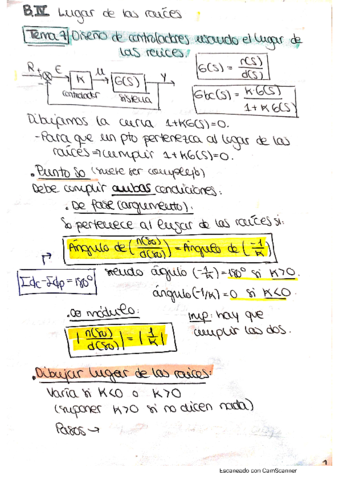 B.IV Lugar de las raíces
Tema 7 Diseño de controladores usando el lugar de
las raíces.
R + E K u G(S) Y
controlador sistema
G(S) = n(s)/d(s)
Gbc(S) = KG(S)/1+KG(S)
Dibujamos la curva 1+KG(S)=0.
- Para que un pto pertenezca al lugar de las
raíces ⇒ cumplir 1+KG(S)=0.
• Punto so (suele ser complejo)
Debe cumplir ambas condiciones:
• De fase (argumento).
So pertenece al lugar de las raíces si:
Ángulo de (n(so)/d(so)) = Ángulo de (-1/K)
Σdc-Σdp=180°
siendo ángulo (-1/K)=180° si K>0.
ángulo(-1/K)=0 si K<0.
• De módulo.
|n(so)/d(so)| = |1/K|
imp: hay que
cumplir las dos.
• Dibujar lugar de las raíces:
Varía si K<0 o K>0
(suponer K>0 si no dicen nada)
Pasos →
1
Escaneado con CamScanner